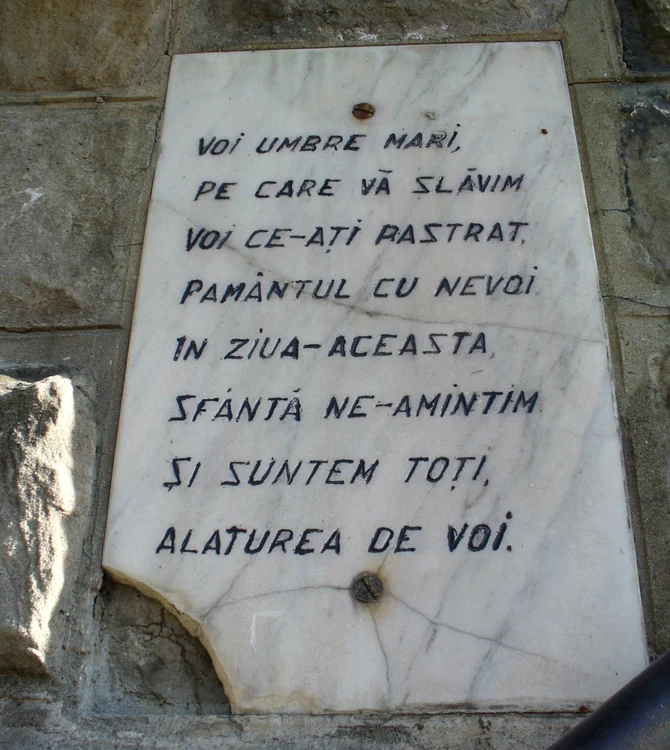 VOI UMBRE MARI,
PE CARE VĂ SLĂVIM
VOI CE-AȚI PASTRAT,
PAMÂNTUL CU NEVOI
IN ZIUA-ACEASTA,
SFÂNTĂ NE-AMINTIM
ȘI SUNTEM TOȚI,
ALATUREA DE VOI.